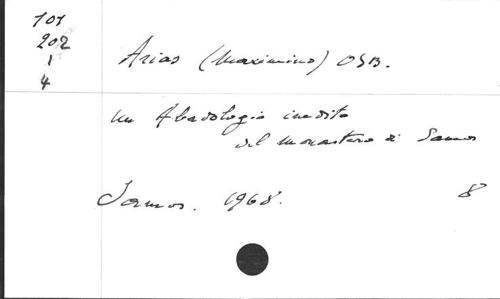 101
202
1
4
Arias (Maximino) OSB.
Un Abadologio inedito
del monastero di Samos
Samos. 1968. 8